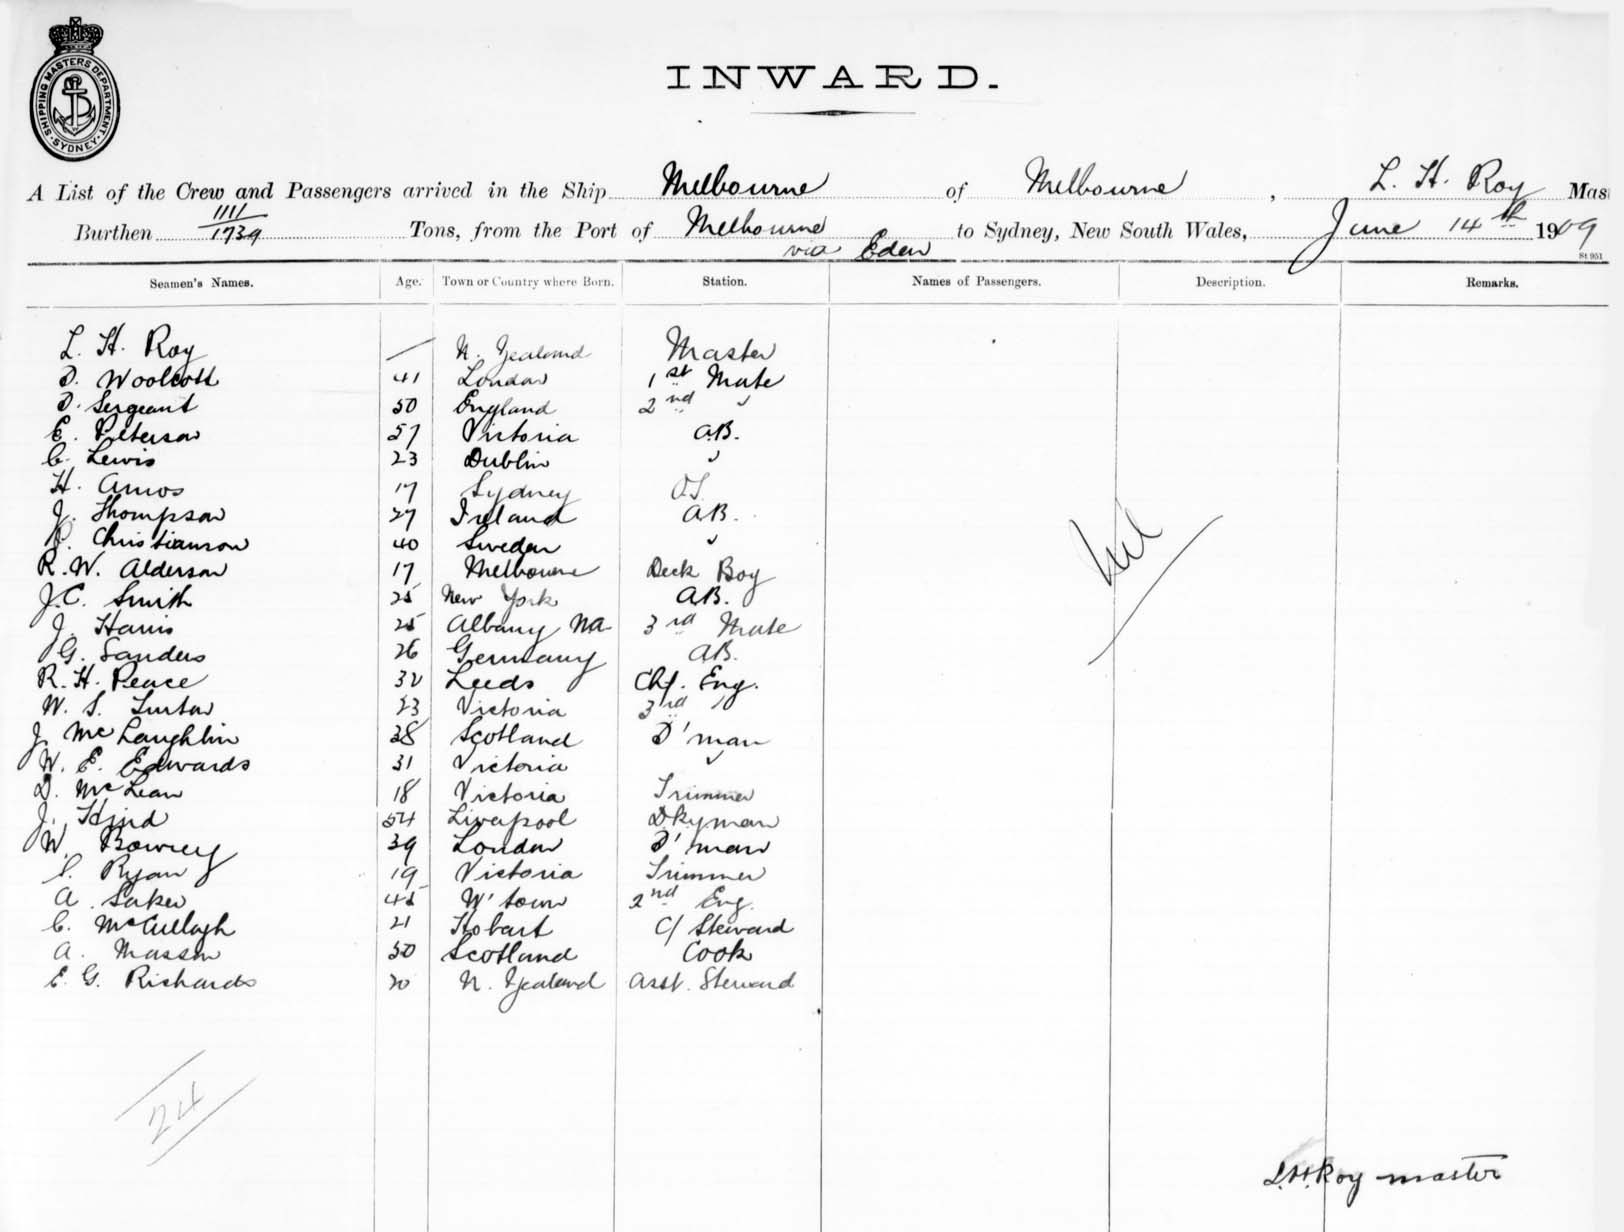 SHIPPING MASTERS DEPARTMENT. SYDNEY.
INWARD.
A List of the Crew and Passengers arrived in the Ship Melbourne of Melbourne, L. H. Roy Mas
Burthen 1111/1739 Tons, from the Port of Melbourne to Sydney, New South Wales, June 14th 1909
via Eden
St 951
Seamen's Names. Age. Town or Country where Born. Station. Names of Passengers. Description. Remarks.
L. H. Roy — N. Zealand Master
D. Woolcott 41 London 1st Mate
D. Sergeant 50 England 2nd "
E. Peterson 57 Victoria A.B.
C. Lewis 23 Dublin "
H. Amos 17 Sydney O.S.
J. Thompson 27 Ireland A.B.
P. Christianson 40 Sweden "
R. W. Alderson 17 Melbourne Deck Boy
J. C. Smith 25 New York A.B.
J. Harris 25 Albany WA 3rd Mate
G. Sanders 26 Germany A.B.
R. H. Pearce 32 Leeds Chf. Eng.
W. S. 23 Victoria 3rd "
J. McLaughlin 38 Scotland D'man
W. E. Edwards 31 Victoria "
D. McLean 18 Victoria Trimmer
J. Hind 54 Liverpool Dkyman
W. Bowrey 39 London D'man
Ryan 19 Victoria Trimmer
A. 45 W'town 2nd Eng.
C. McCullagh 21 Hobart C/ Steward
A. Masson 50 Scotland Cook
E. G. Richards 20 N. Zealand Asst. Steward
Nil
24
L. H. Roy master